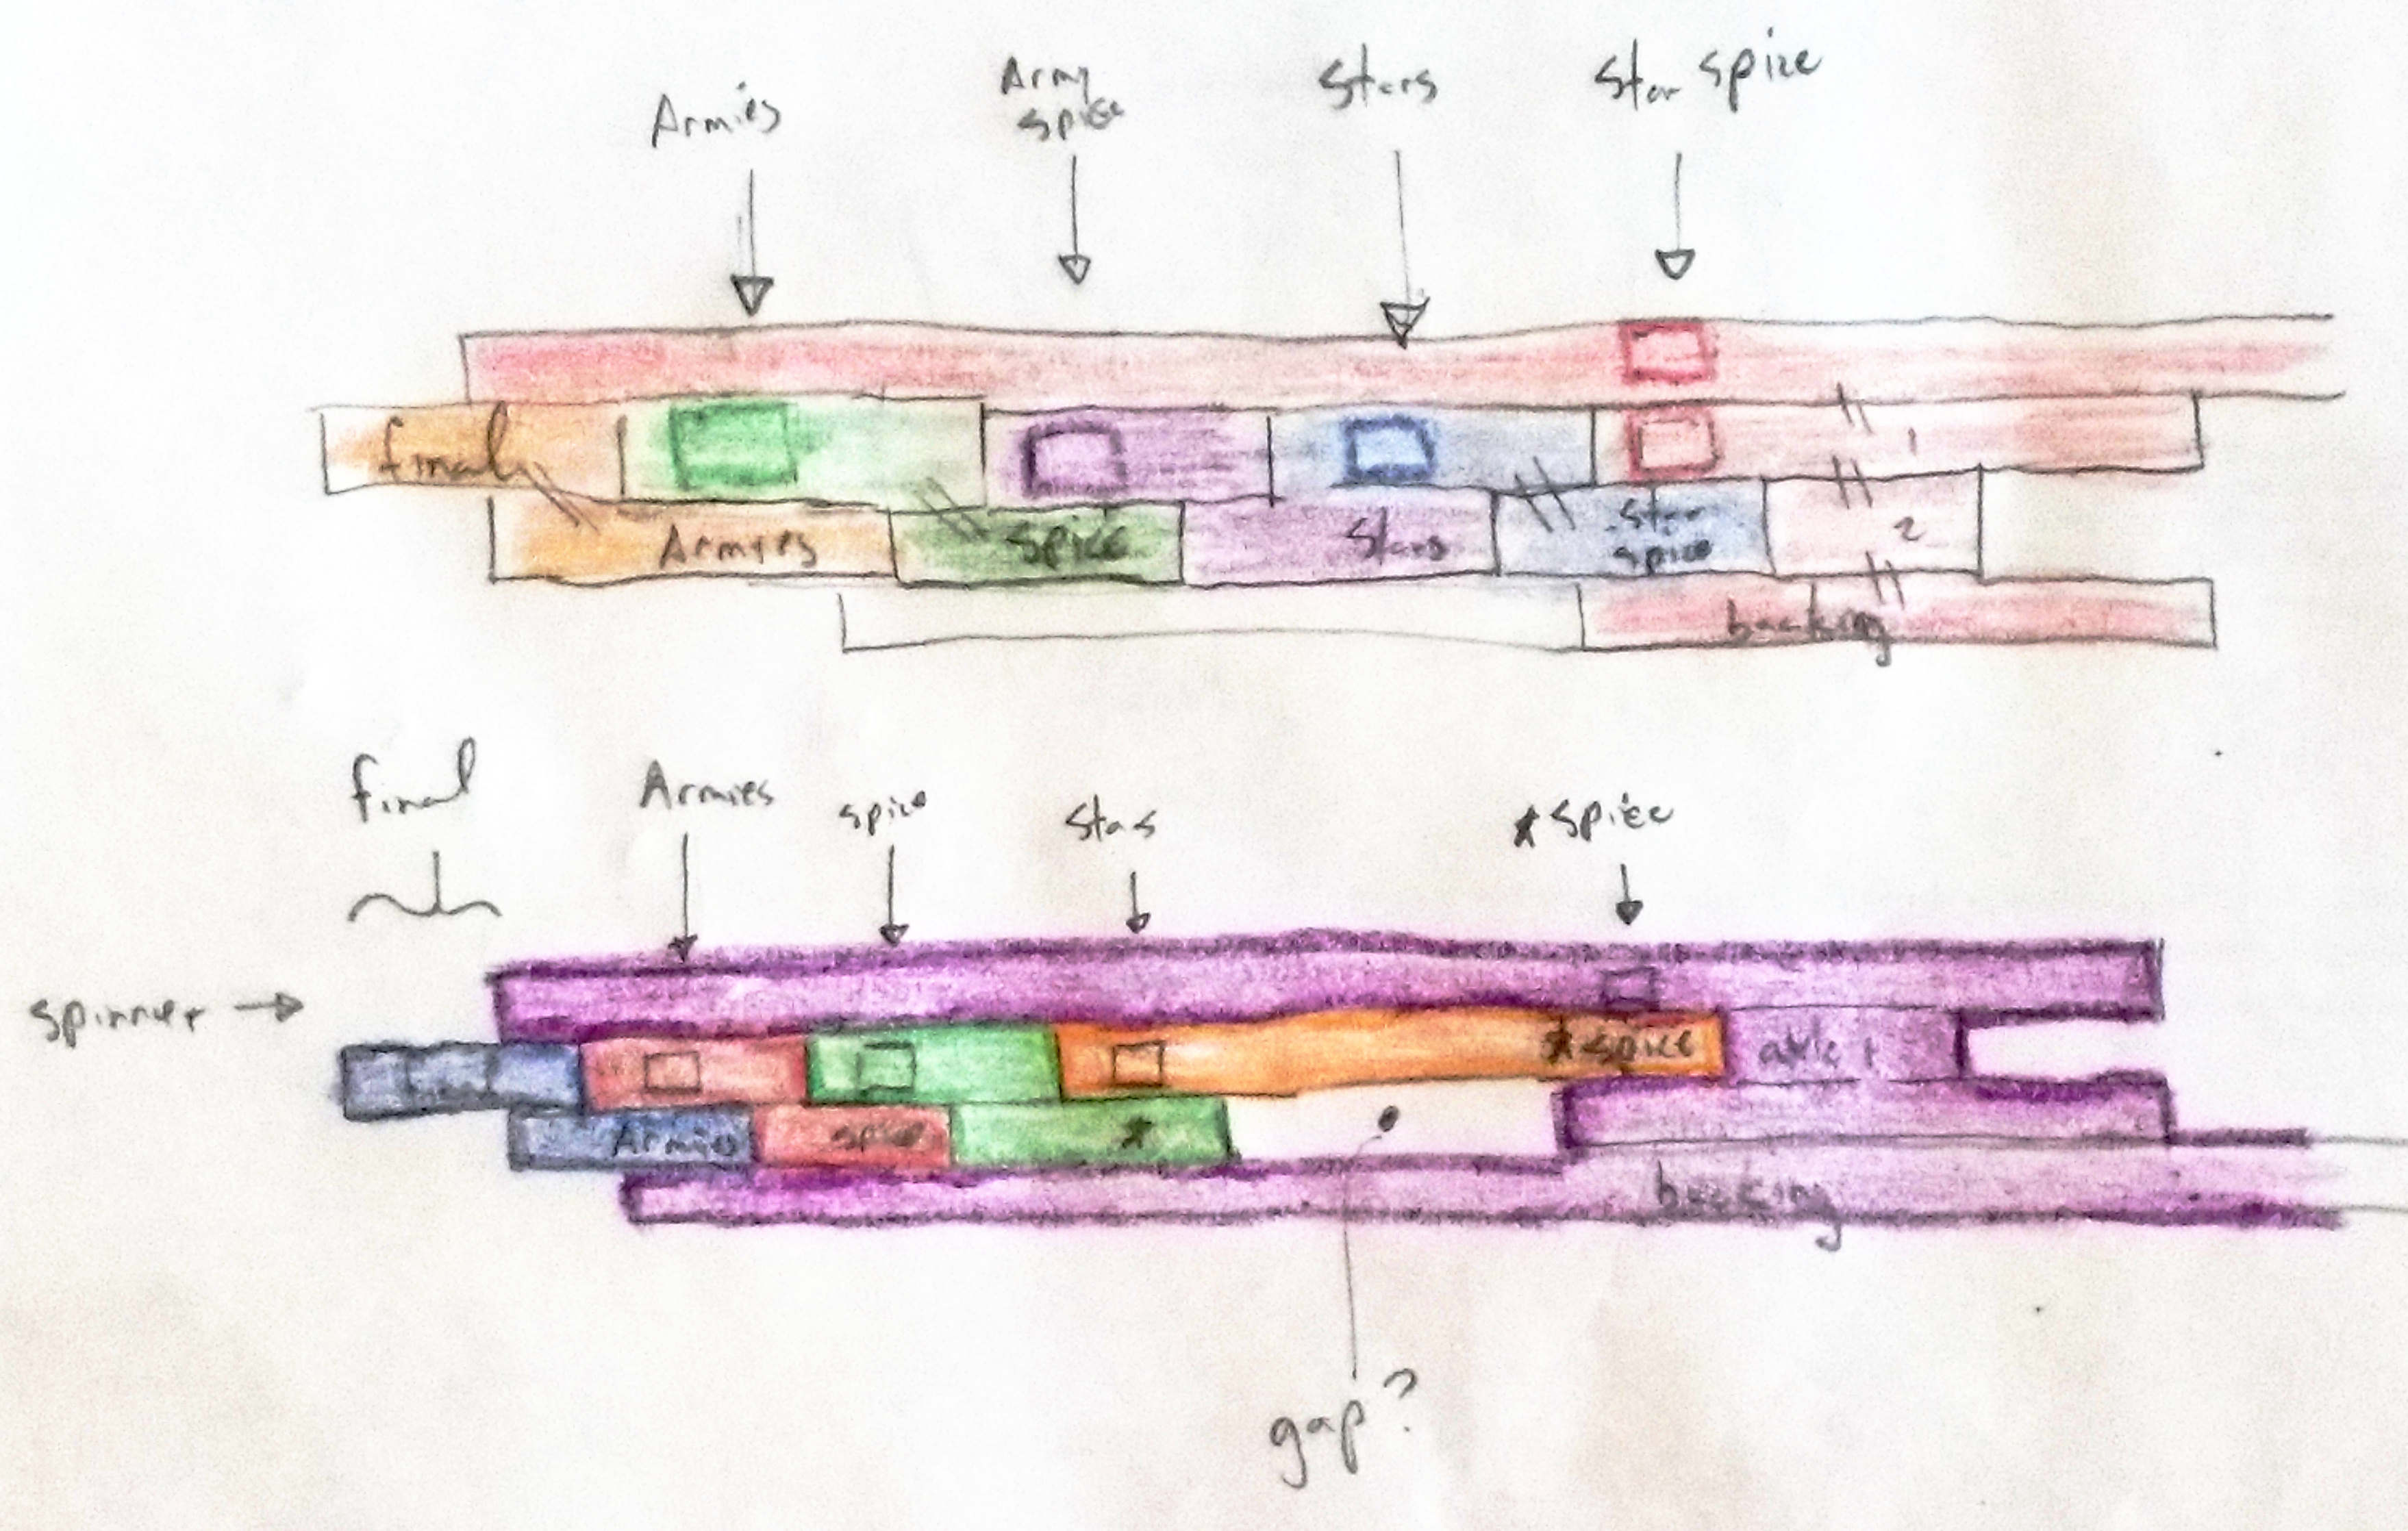 Armies
Army
spice
Stars
Star spice
final
1
Armies
spice
Stars
star
spice
2
backing
final
Armies
spice
Stas
★ spice
spinner →
★ spice
Armies
spice
★
backing
gap?